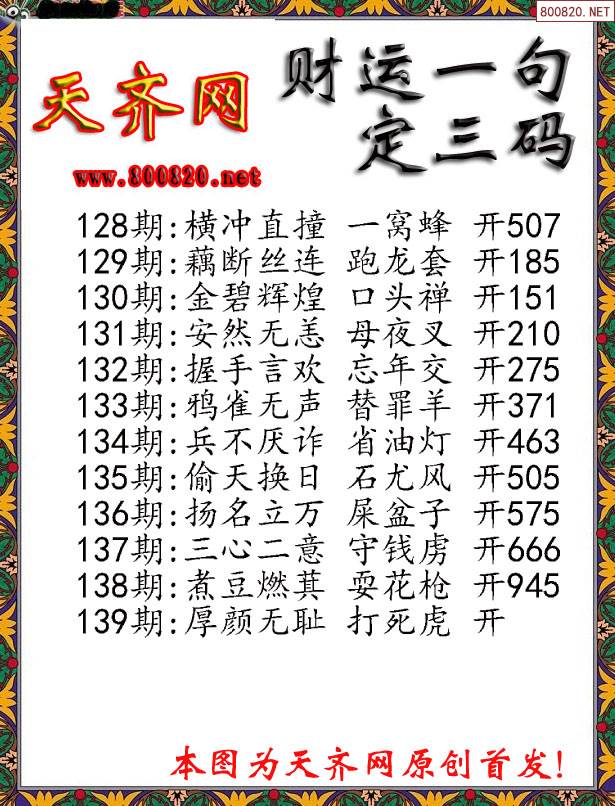 800820.NET
天齐网
财运一句
定三码
www.800820.net
128期:横冲直撞 一窝蜂 开507
129期:藕断丝连 跑龙套 开185
130期:金碧辉煌 口头禅 开151
131期:安然无恙 母夜叉 开210
132期:握手言欢 忘年交 开275
133期:鸦雀无声 替罪羊 开371
134期:兵不厌诈 省油灯 开463
135期:偷天换日 石尤风 开505
136期:扬名立万 屎盆子 开575
137期:三心二意 守钱虏 开666
138期:煮豆燃萁 耍花枪 开945
139期:厚颜无耻 打死虎 开
本图为天齐网原创首发!